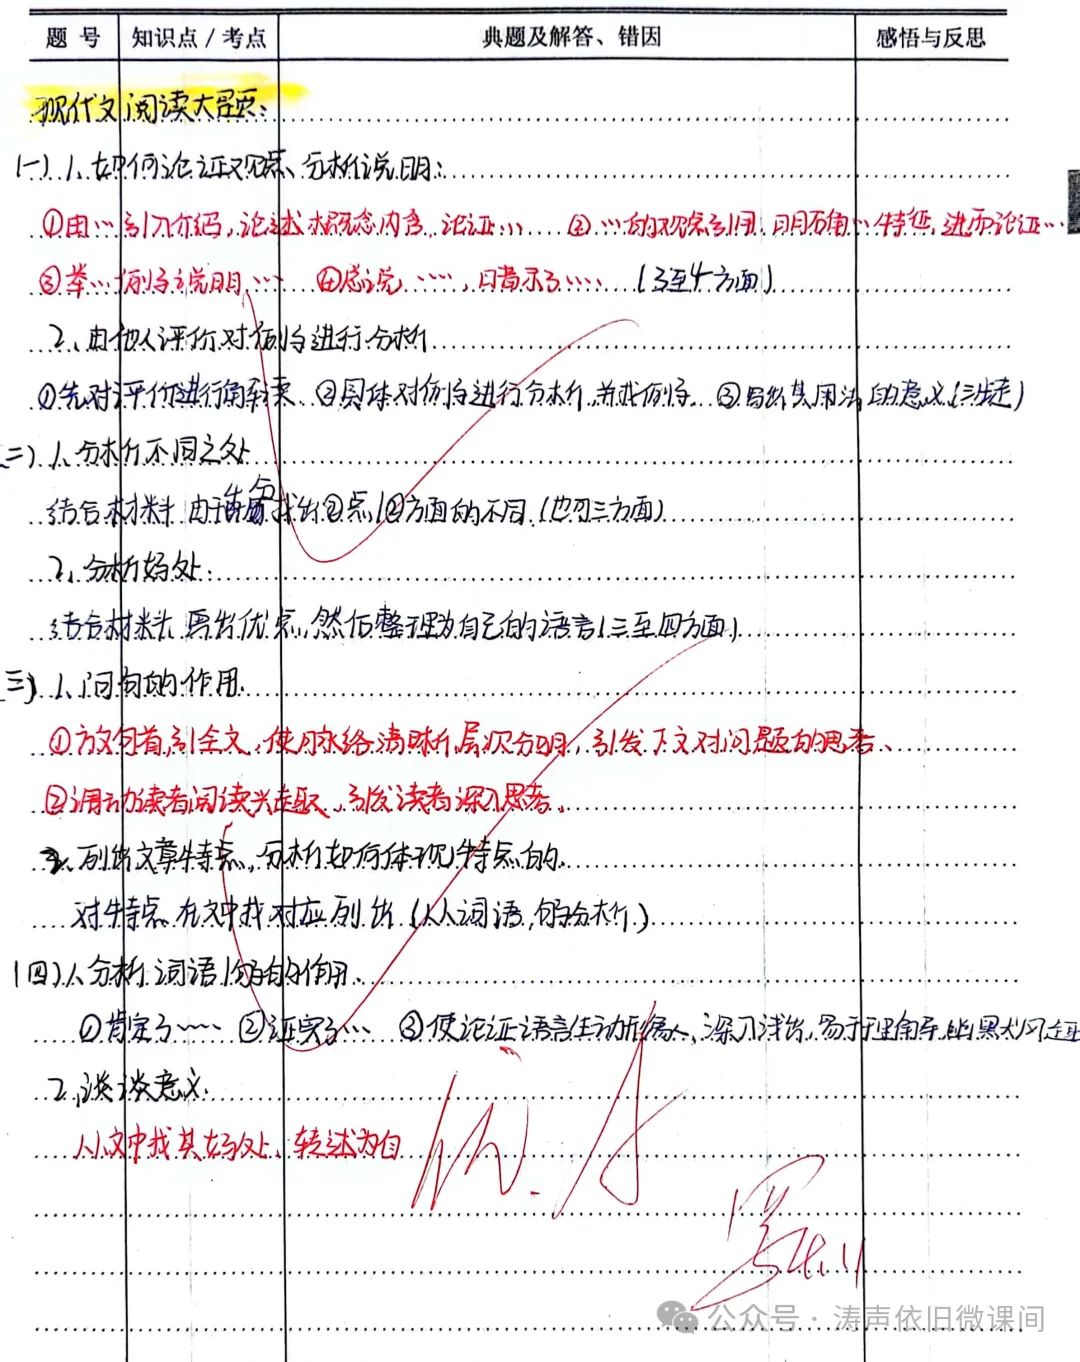 题号 知识点/考点 典题及解答、错因 感悟与反思
现代文阅读大题:
(一)1、如何论证观点、分析说明:
①由…引入介绍,论述概念内容,论证… ②…的观点引用,明确…特征,进而论证…
③举…例子说明… ④总说……,揭示了…… (3至4方面)
2、由他人评价对例子进行分析
①先对评价进行解读 ②具体对例子进行分析,并找例子 ③写出其用法的意义(三步走)
(二)1、分析不同之处
结合材料 由 找出②点/②方面的不同(也可三方面)
2、分析好处:
结合材料 写出优点,然后整理为自己的语言(三至四方面)
(三)1、问句的作用
①放句首,引全文,使脉络清晰,层次分明,引发下文对问题的思考、
②调动读者阅读兴趣,引发读者深入思考。
2、列出文章特点,分析如何体现特点的.
对特点在文中找对应列出(从词语,句分析)
(四)1、分析词语/句的作用.
①肯定了…… ②证实了… ③使论证语言生动形象,深入浅出,易于理解
2、谈谈意义:
从文中找其好处、转述为自
优.
公众号·涛声依旧微课间